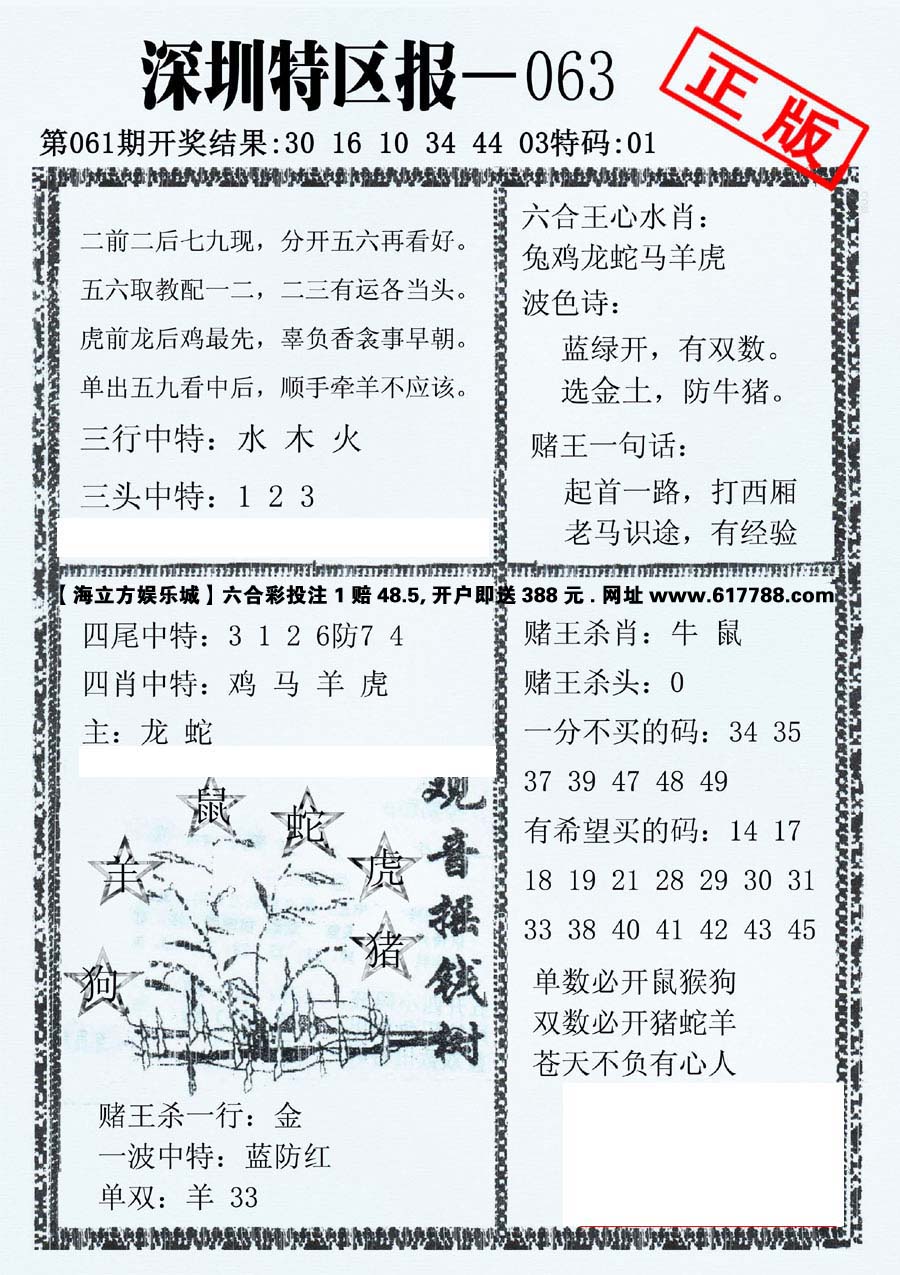 深圳特区报—063
正版
第061期开奖结果:30 16 10 34 44 03特码:01
二前二后七九现，分开五六再看好。
五六取教配一二，二三有运各当头。
虎前龙后鸡最先，辜负香衾事早朝。
单出五九看中后，顺手牵羊不应该。
三行中特：水 木 火
三头中特：1 2 3
六合王心水肖：
兔鸡龙蛇马羊虎
波色诗：
蓝绿开，有双数。
选金土，防牛猪。
赌王一句话：
起首一路，打西厢
老马识途，有经验
【海立方娱乐城】六合彩投注1赔48.5,开户即送388元.网址www.617788.com
四尾中特：3 1 2 6防7 4
四肖中特：鸡 马 羊 虎
主：龙 蛇
鼠
蛇
羊
虎
猪
狗
观音摇钱树
赌王杀一行：金
一波中特：蓝防红
单双：羊 33
赌王杀肖：牛 鼠
赌王杀头：0
一分不买的码：34 35
37 39 47 48 49
有希望买的码：14 17
18 19 21 28 29 30 31
33 38 40 41 42 43 45
单数必开鼠猴狗
双数必开猪蛇羊
苍天不负有心人